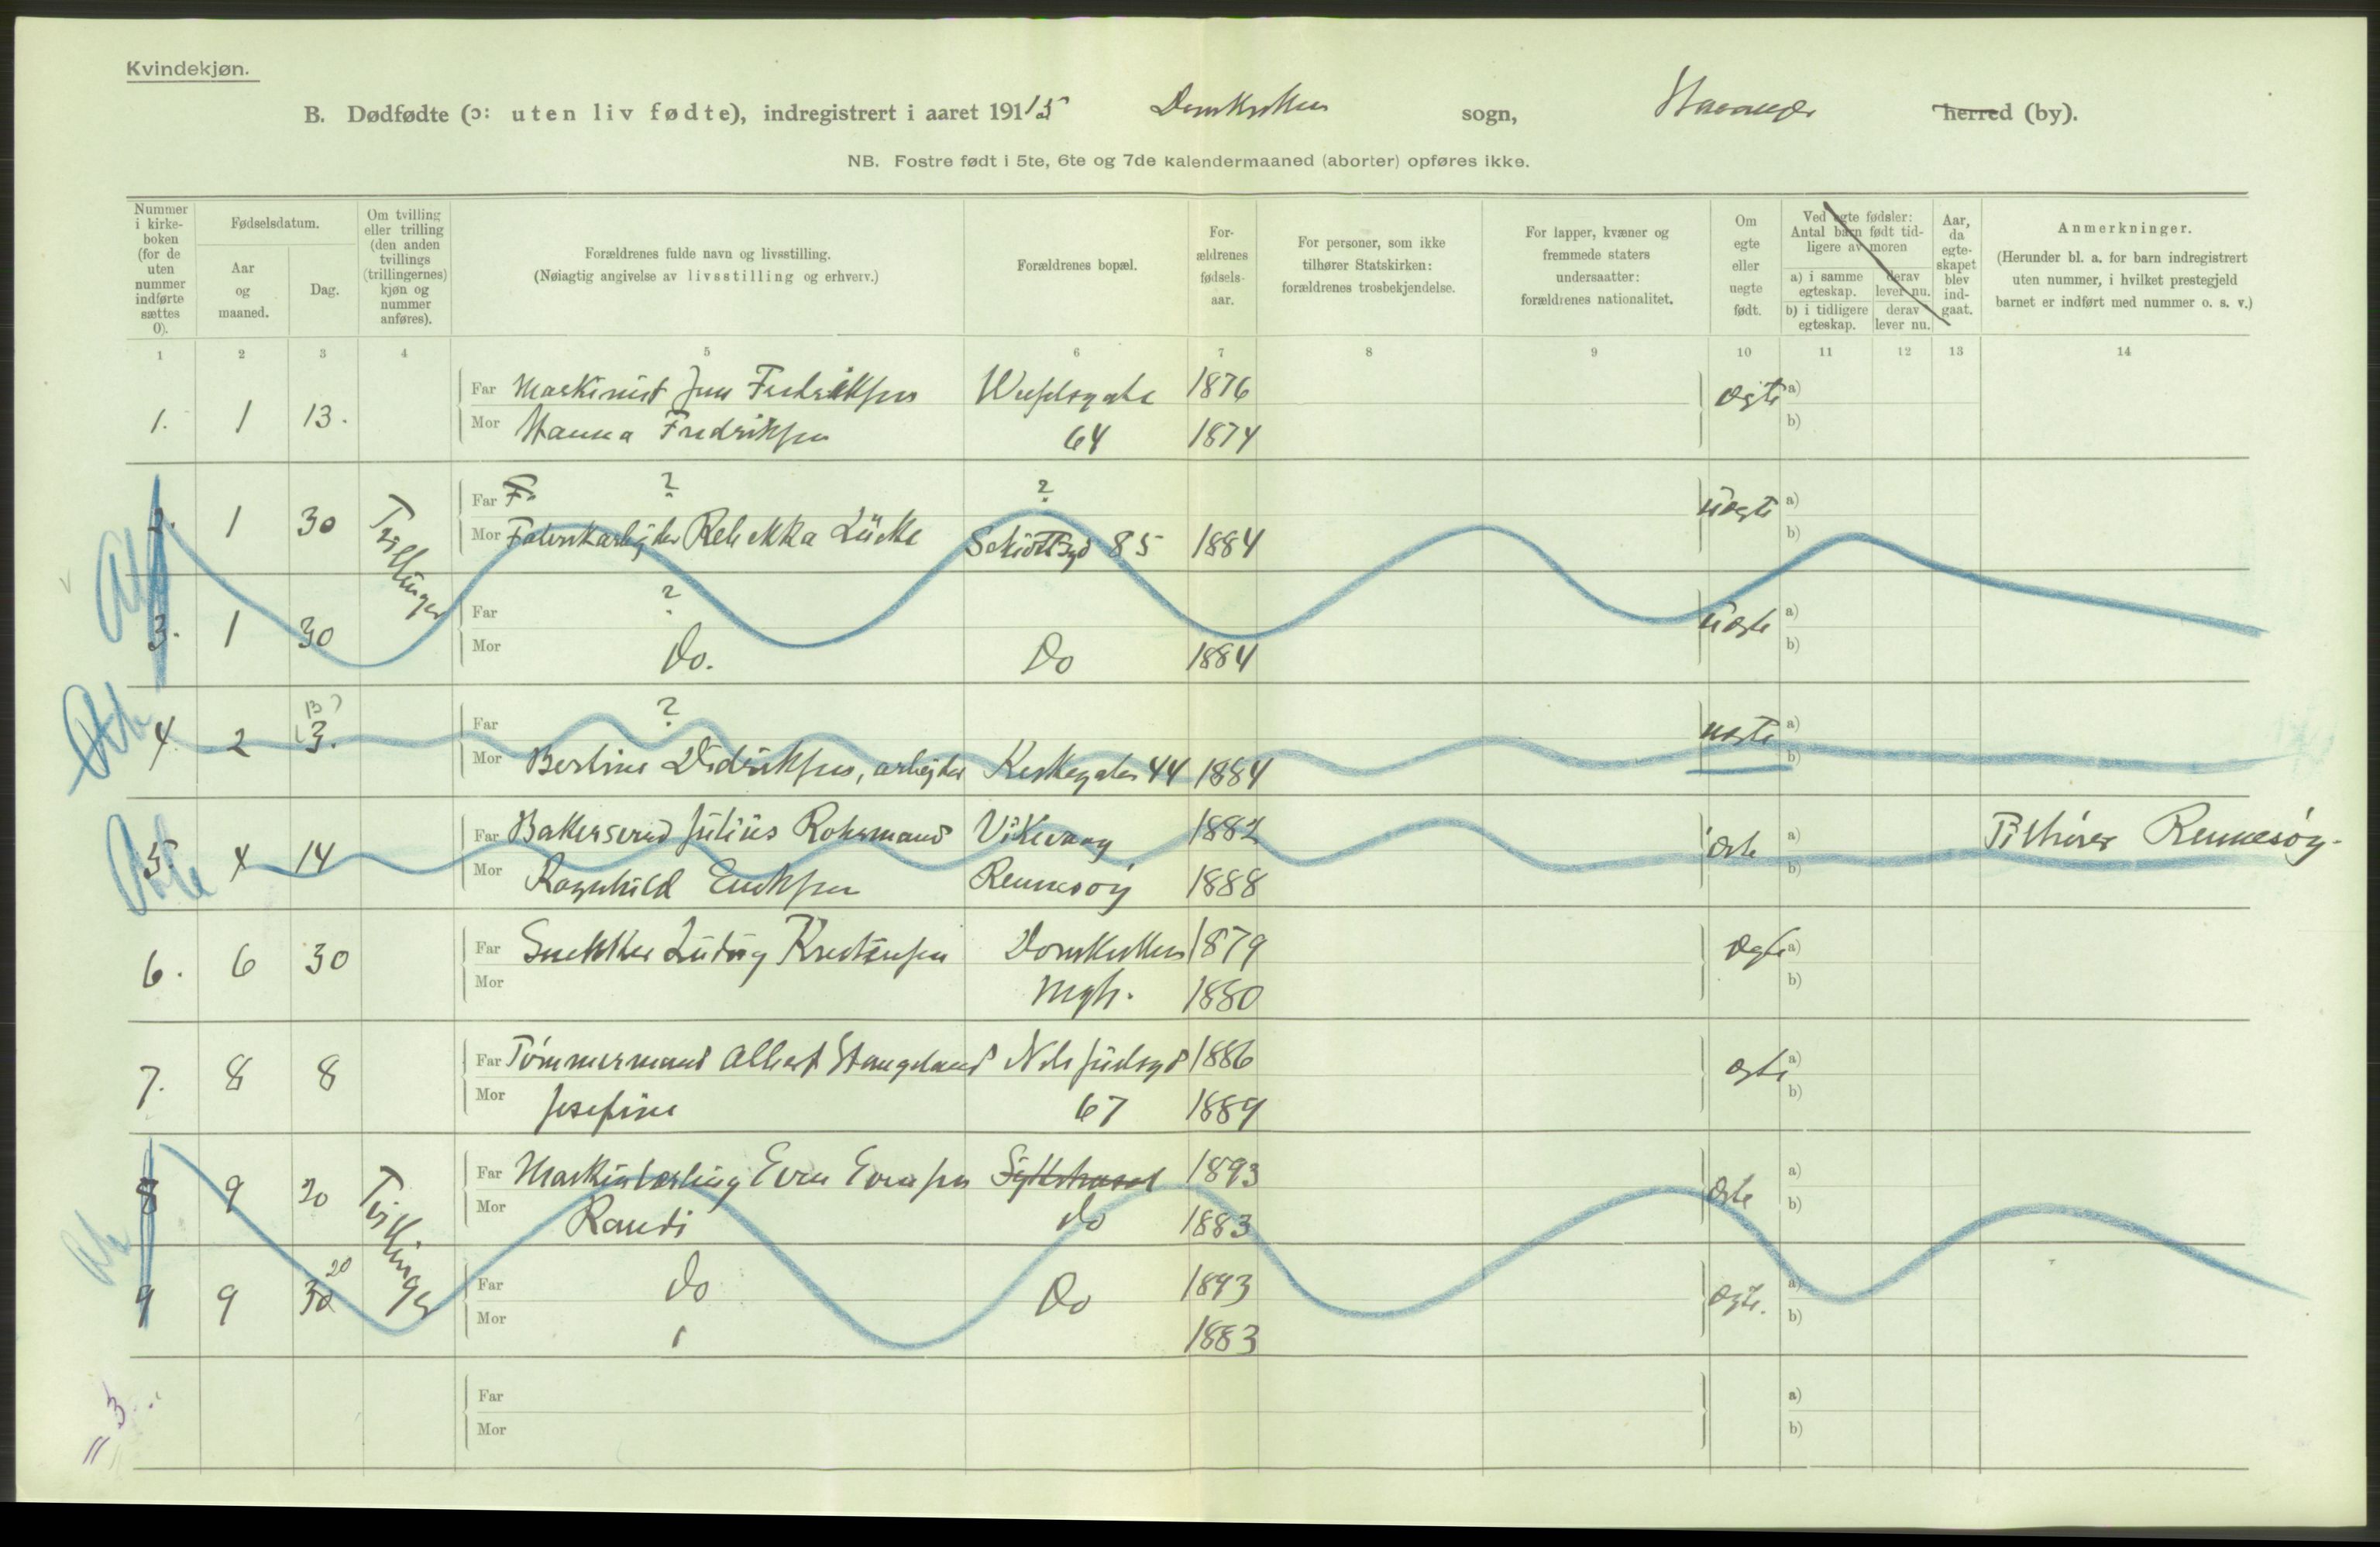 Kvindekjøn.
B. Dødfødte (ɔ: uten liv fødte), indregistrert i aaret 1915 Domkirken sogn, Stavanger herred (by).
NB. Fostre født i 5te, 6te og 7de kalendermaaned (aborter) opføres ikke.
Nummer i kirke-boken (for de uten nummer indførte sættes 0).
Fødselsdatum.
Aar og maaned.
Dag.
Om tvilling eller trilling (den anden tvillings (trillingernes) kjøn og nummer anføres).
Forældrenes fulde navn og livsstilling.
(Nøiagtig angivelse av livsstilling og erhverv.)
Forældrenes bopæl.
For-ældrenes fødsels-aar.
For personer, som ikke tilhører Statskirken: forældrenes trosbekjendelse.
For lapper, kvæner og fremmede staters undersaatter: forældrenes nationalitet.
Om egte eller uegte født.
Ved egte fødsler: Antal barn født tid-ligere av moren
a) i samme egteskap. derav lever nu.
b) i tidligere egteskap. derav lever nu.
Aar, da egte-skapet blev ind-gaat.
Anmerkninger.
(Herunder bl. a. for barn indregistrert uten nummer, i hvilket prestegjeld barnet er indført med nummer o. s. v.)
1 2 3 4 5 6 7 8 9 10 11 12 13 14
1. 1 13. Far Maskinist Fredriksen 1876 Ægte a)
Mor Hanna Fredriksen 64 1874 b)
2. 1 30 Tvillinger Far F. ? ? Uegte a)
Mor Fabrikarbejder Rebekka Lücke 85 1884 b)
3. 1 30 Far ? Uegte a)
Mor Do. Do 1884 b)
4. 2 13. 13 Far ? uegte a)
Mor Bertine Didriksen, arbejder Kirkegaten 44 1884 b)
5. 4 14 Far Bakersvend Julius Rohrmand Vikevaag 1882 Ægte a) Tilhører Rennesøy.
Mor Ragnhild Rennesøy 1888 b)
6. 6 30 Far Snekker Ludvig Kristensen Domkirkens 1879 Ægte a)
Mor Mgh. 1880 b)
7. 8 8 Far Tømmermand Albert Stangeland Nils Juelsgd 1886 Ægte a)
Mor Josefine 67 1889 b)
8 9 20 Tvillinger Far Maskinlærling Even Evensen 1893 Ægte a)
Mor Randi do 1883 b)
9 9 30 20 Far do Do 1893 Ægte. a)
Mor 1883 b)
Far a)
Mor b)
3